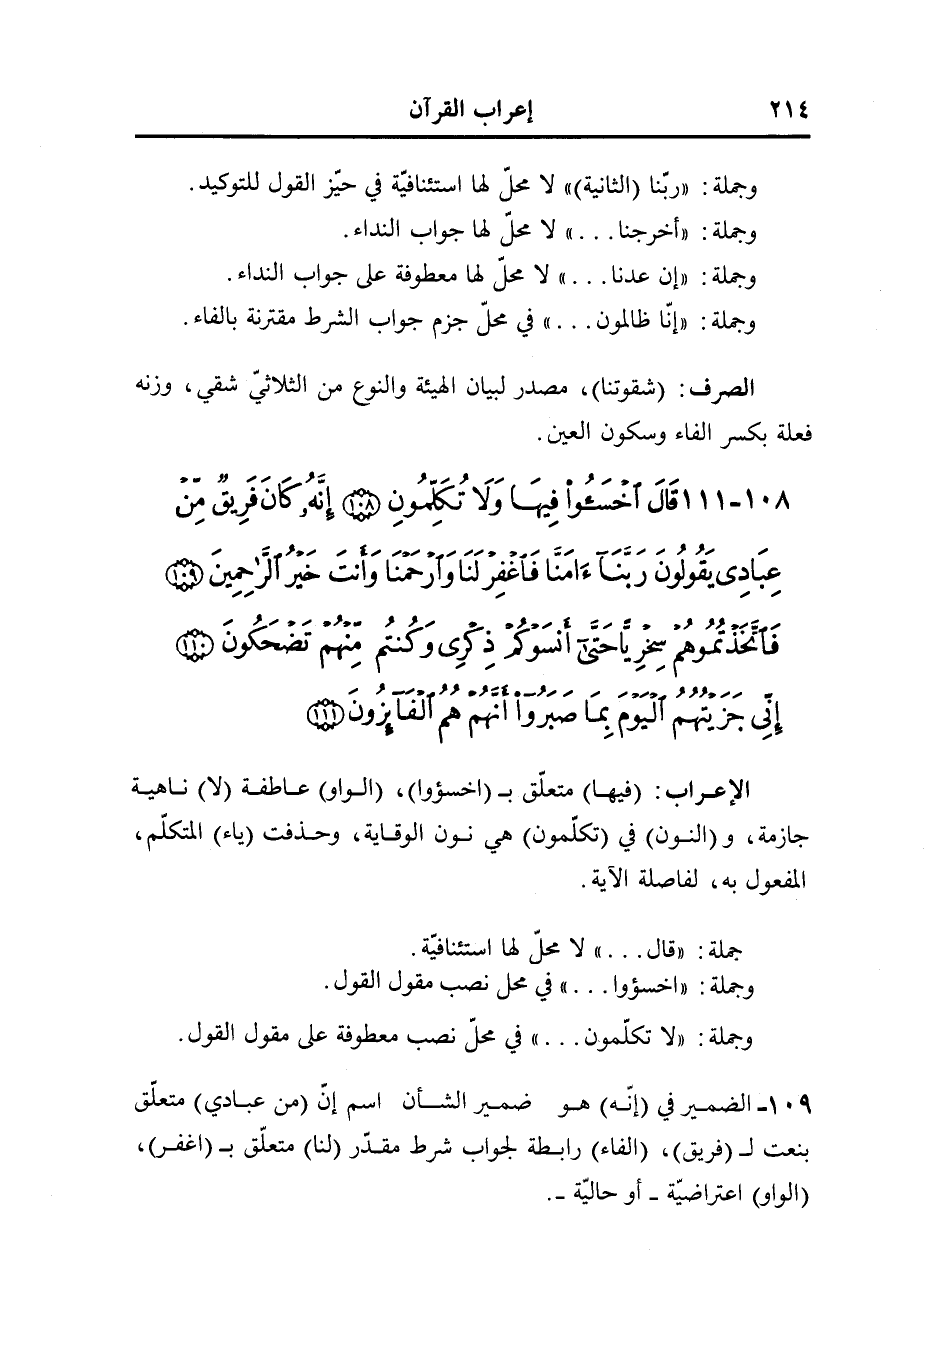 ٢١٤ إعراب القرآن
وجملة: «ربّنا (الثانية)» لا محلّ لها استئنافيّة في حيّز القول للتوكيد.
وجملة: «أخرجنا. . .» لا محلّ لها جواب النداء.
وجملة: «إن عدنا. . .» لا محلّ لها معطوفة على جواب النداء.
وجملة: «إنّا ظالمون. . .» في محلّ جزم جواب الشرط مقترنة بالفاء.
الصرف: (شقوتنا)، مصدر لبيان الهيئة والنوع من الثلاثيّ شقي، وزنه
فعلة بكسر الفاء وسكون العين.
١٠٨-١١١ قَالَ ٱخْسَـُٔوا۟ فِيهَا وَلَا تُكَلِّمُونِ ﴿١٠٨﴾ إِنَّهُۥ كَانَ فَرِيقٌ مِّنْ
عِبَادِى يَقُولُونَ رَبَّنَآ ءَامَنَّا فَٱغْفِرْ لَنَا وَٱرْحَمْنَا وَأَنتَ خَيْرُ ٱلرَّٰحِمِينَ ﴿١٠٩﴾
فَٱتَّخَذْتُمُوهُمْ سِخْرِيًّا حَتَّىٰٓ أَنسَوْكُمْ ذِكْرِى وَكُنتُم مِّنْهُمْ تَضْحَكُونَ ﴿١١٠﴾
إِنِّى جَزَيْتُهُمُ ٱلْيَوْمَ بِمَا صَبَرُوٓا۟ أَنَّهُمْ هُمُ ٱلْفَآئِزُونَ ﴿١١١﴾
الإعـراب: (فيهـا) متعلّق بـ (اخسؤوا)، (الـواو) عـاطفـة (لا) نـاهيـة
جازمة، و (النـون) في (تكلّمون) هي نـون الوقـاية، وحـذفت (ياء) المتكلّم،
المفعول به، لفاصلة الآية.
جملة: «قال. . .» لا محلّ لها استئنافيّة.
وجملة: «اخسؤوا. . .» في محل نصب مقول القول.
وجملة: «لا تكلّمون. . .» في محلّ نصب معطوفة على مقول القول.
١٠٩- الضميـر في (إنّـه) هـو ضميـر الشـأن اسم إنّ (من عبـادي) متعلّق
بنعت لـ (فريق)، (الفاء) رابـطة لجواب شرط مقـدّر (لنا) متعلّق بـ (اغفـر)،
(الواو) اعتراضيّة ـ أو حاليّة ـ.